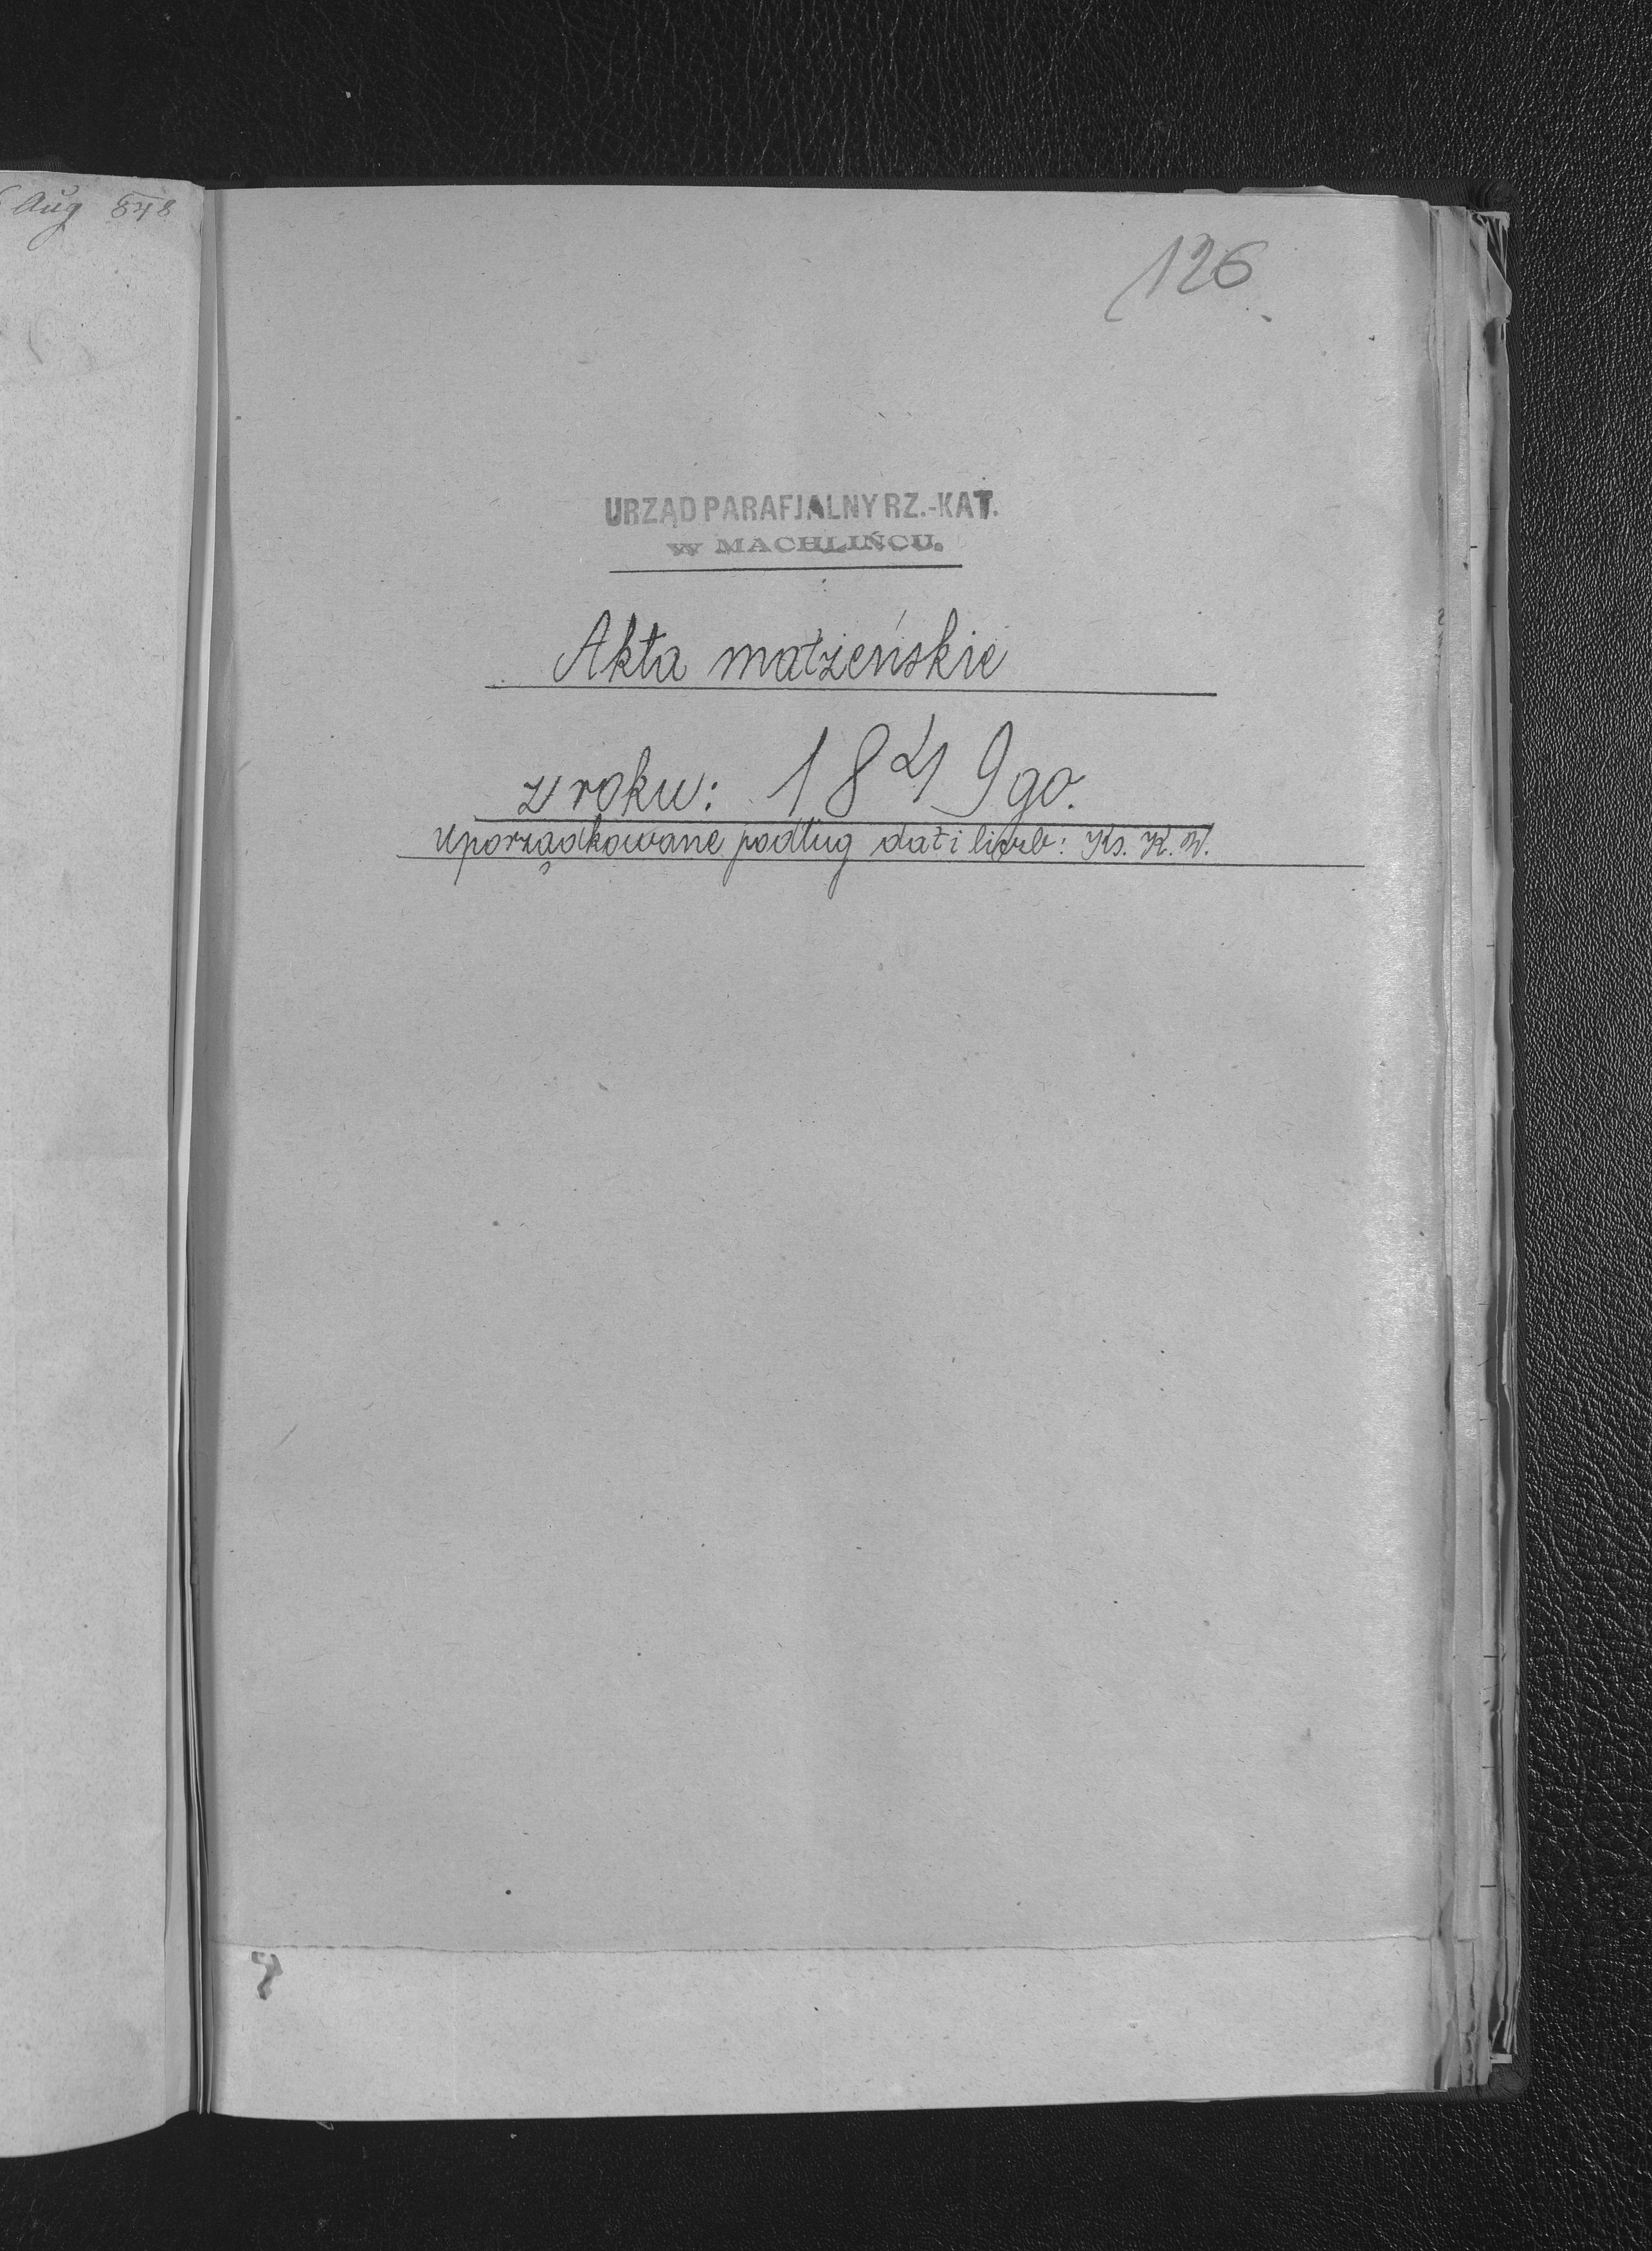 Aug 848
126
URZĄD PARAFJALNY RZ.-KAT.
W MACHLIŃCU.
Akta małżeńskie
z roku: 1849go.
uporządkowane podług dat i liczb: Ks. K. W.